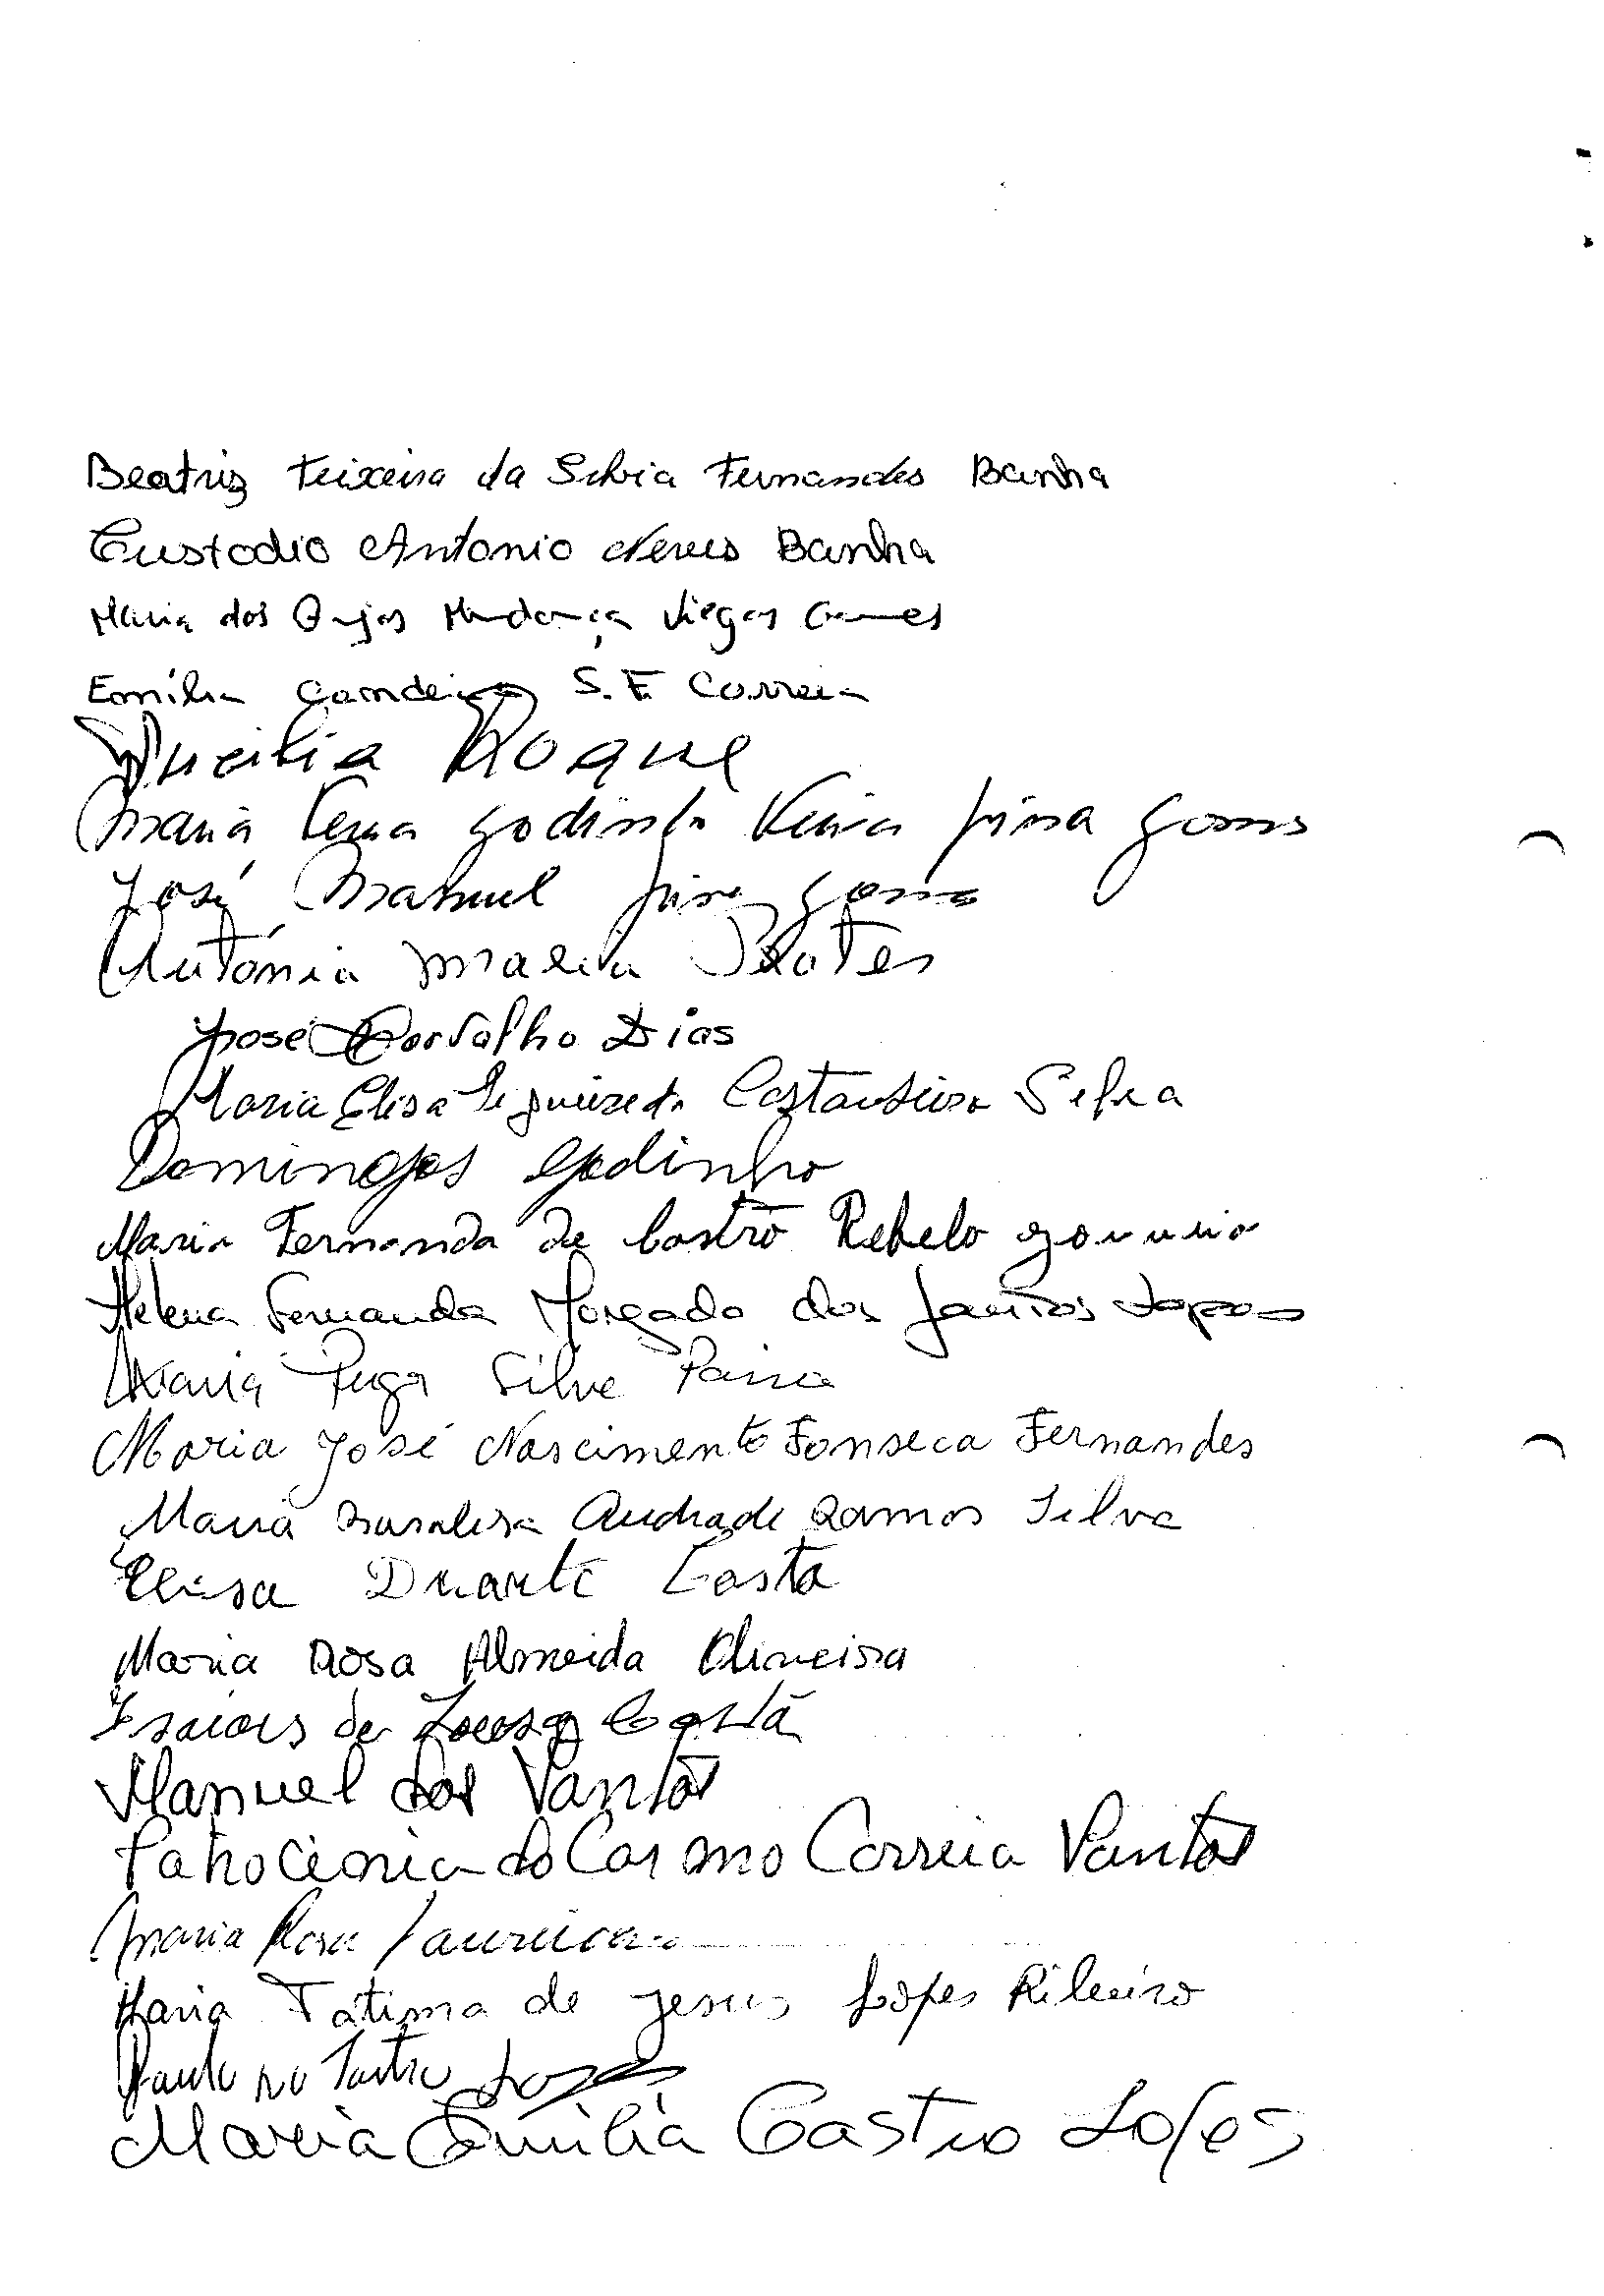 Beatriz Teixeira da Silvia Fernandes Banha
Custodio Antonio Neves Banha
Maria dos Anjos Mendonça Viegas Gomes
Emília Candeias S. F. Correia
Lucilia Roque
Maria Lena Godinho Vieira Pina Gomes
José Manuel Pina Gomes
António Maria Prates
José Carvalho Dias
Maria Elisa Figueiredo Castanheira Silva
Domingos Godinho
Maria Fernanda de Castro Rebelo
Helena Fernanda Morgado dos Santos Lopes
Maria Puga Silva Paiva
Maria José Nascimento Fonseca Fernandes
Maria Andrade Ramos Silva
Elisa Duarte Costa
Maria Rosa Almeida Oliveira
Isaias de Sousa Costa
Manuel dos Santos
Patrocienia do Carmo Correia Santos
Maria Rosa
Maria Fatima de Jesus Lopes Ribeiro
Castro Lopes
Maria Emilia Castro Lopes